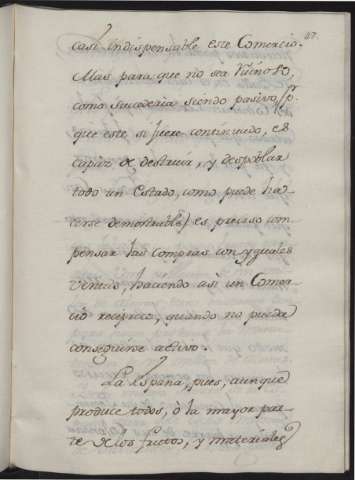 47.
casi indispensable este Comercio.
Mas para que no sea ruinoso,
como sucederia siendo pasivo (p.
que este si fuere continuado, es
capaz de destruir, y despoblar
todo un Estado, como puede ha-
cerse demostrable) es preciso com
pensar las Compras con yguales
Ventas, haciendo asi un Comer-
cio reciproco, quando no pueda
conseguirse activo.
La España, pues, aunque
produce todos, ò la mayor par-
te de los frutos, y materiales